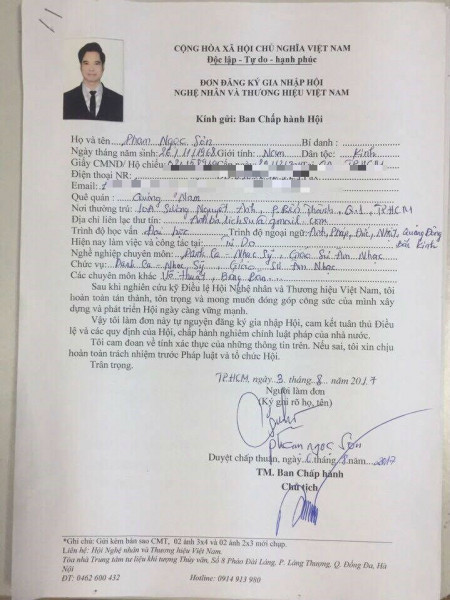 CỘNG HÒA XÃ HỘI CHỦ NGHĨA VIỆT NAM
Độc lập - Tự do - hạnh phúc
ĐƠN ĐĂNG KÝ GIA NHẬP HỘI
NGHỆ NHÂN VÀ THƯƠNG HIỆU VIỆT NAM
Kính gửi: Ban Chấp hành Hội
Họ và tên Phạm Ngọc Sơn Bí danh :
Ngày tháng năm sinh: 26/11/1968 Giới tính: Nam Dân tộc: Kinh
Giấy CMND/ Hộ chiếu: TP.HCM
Điện thoại NR:
Email:
Quê quán : Quảng Nam
Nơi thường trú: Sương Nguyệt Ánh P. Bến Thành, Q.1, TP.HCM
Địa chỉ liên lạc thư tín: gmail.com
Trình độ học vấn Đại học Trình độ ngoại ngữ Anh, Pháp, Đức, Nhật, Quảng Đông
Bắc Kinh
Hiện nay làm việc và công tác tại: Tự Do
Nghề nghiệp chuyên môn: Danh Ca Nhạc Sỹ, Giáo Sư Âm Nhạc
Chức vụ: Danh Ca Nhạc Sỹ, Giáo Sư Âm Nhạc
Các chuyên môn khác Võ thuật, Bóng Bàn
Sau khi nghiên cứu kỹ Điều lệ Hội Nghệ nhân và Thương hiệu Việt Nam, tôi
hoàn toàn tán thành, tôn trọng và mong muốn đóng góp công sức của mình xây dựng
và phát triển Hội ngày càng vững mạnh.
Vậy tôi làm đơn này tự nguyện đăng ký gia nhập Hội, cam kết tuân thủ Điều
lệ và các quy định của Hội, chấp hành nghiêm chính luật pháp của nhà nước.
Tôi cam đoan về tính xác thực của những thông tin trên. Nếu sai, tôi xin chịu
hoàn toàn trách nhiệm trước Pháp luật và tổ chức Hội.
Trân trọng.
TP.HCM, ngày 3 tháng 8 năm 2017
Người làm đơn
(Ký ghi rõ họ, tên)
Phạm Ngọc Sơn
Duyệt chấp thuận, ngày tháng 8 năm 2017
TM. Ban Chấp hành
Chủ tịch
*Ghi chú: Gửi kèm bản sao CMT, 02 ảnh 3x4 và 02 ảnh 2x3 mới chụp.
Liên hệ: Hội Nghệ nhân và Thương hiệu Việt Nam.
Tòa nhà Trung tâm tư liệu khí tượng Thủy văn, Số 8 Pháo Đài Láng, P. Láng Thượng, Q. Đống Đa, Hà
Nội
ĐT: 0462 600 432 Hotline: 0914 913 980